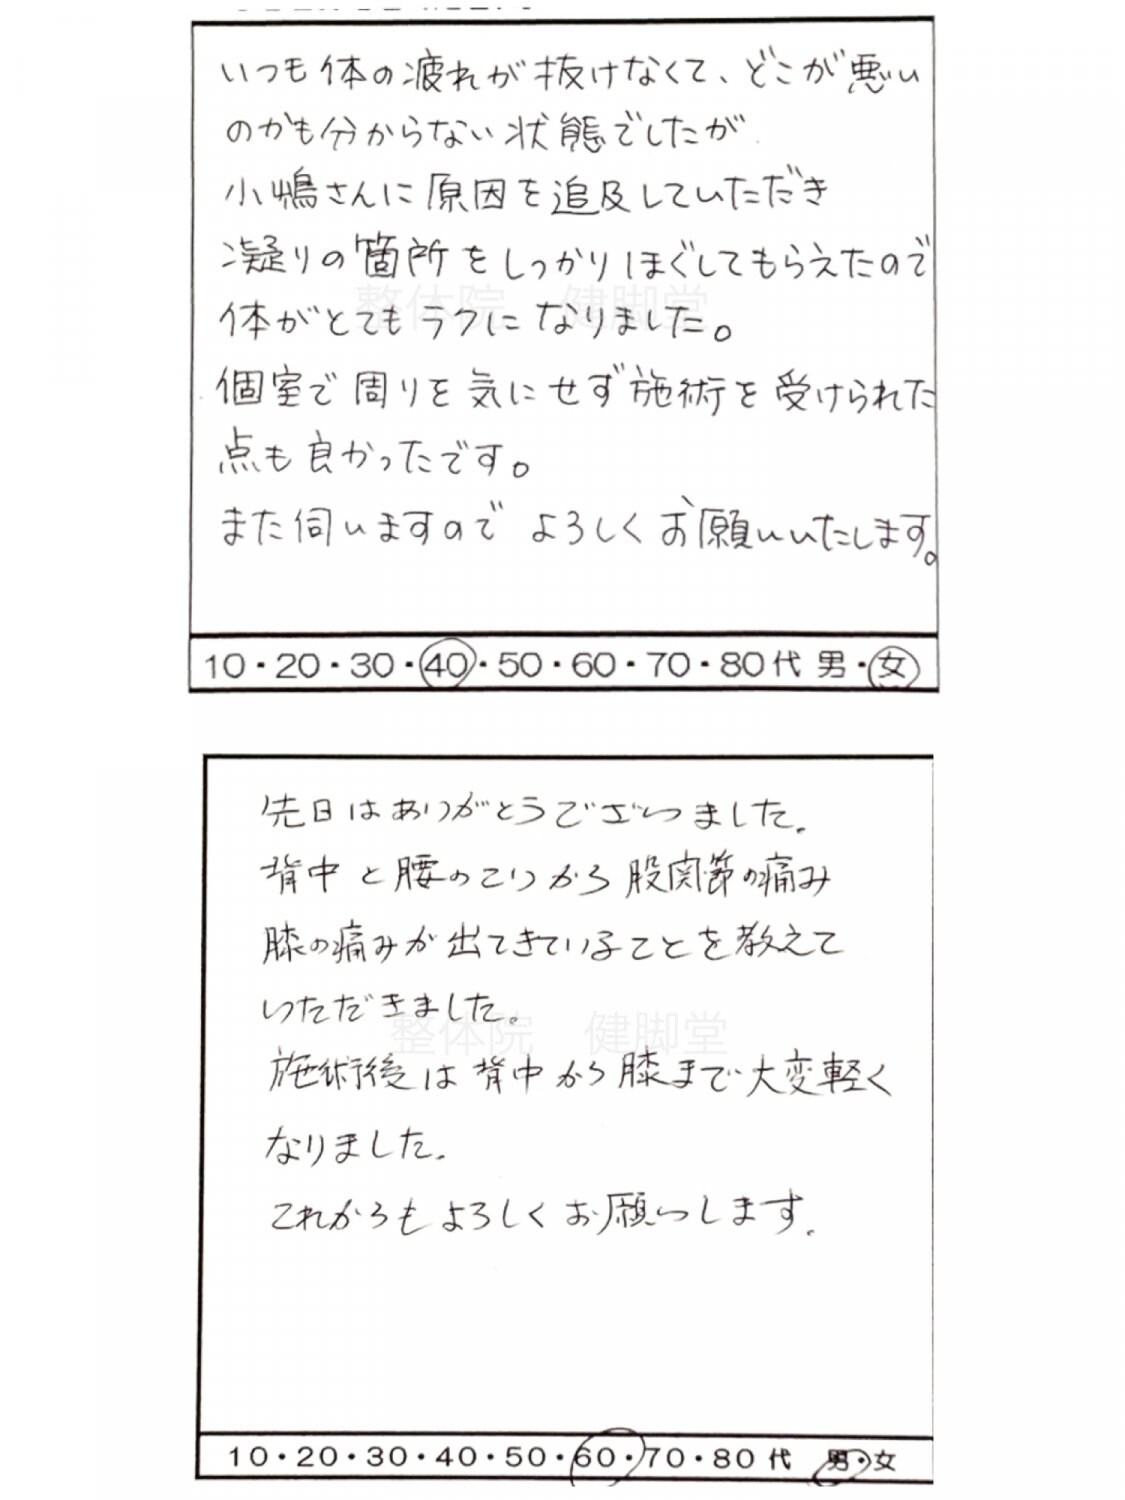 いつも体の疲れが抜けなくて、どこが悪い
のかも分からない状態でしたが
小嶋さんに原因を追及していただき
凝りの箇所をしっかりほぐしてもらえたので
体がとてもラクになりました。
個室で周りを気にせず施術を受けられた
点も良かったです。
また伺いますのでよろしくお願いいたします。
整体院 健脚堂
10・20・30・40・50・60・70・80代 男・女
先日はありがとうございました。
背中と腰のこりから股関節の痛み
膝の痛みが出てきていることを教えて
いただきました。
整体院 健脚堂
施術後は背中から膝まで大変軽く
なりました。
これからもよろしくお願いします。
10・20・30・40・50・60・70・80代 男・女